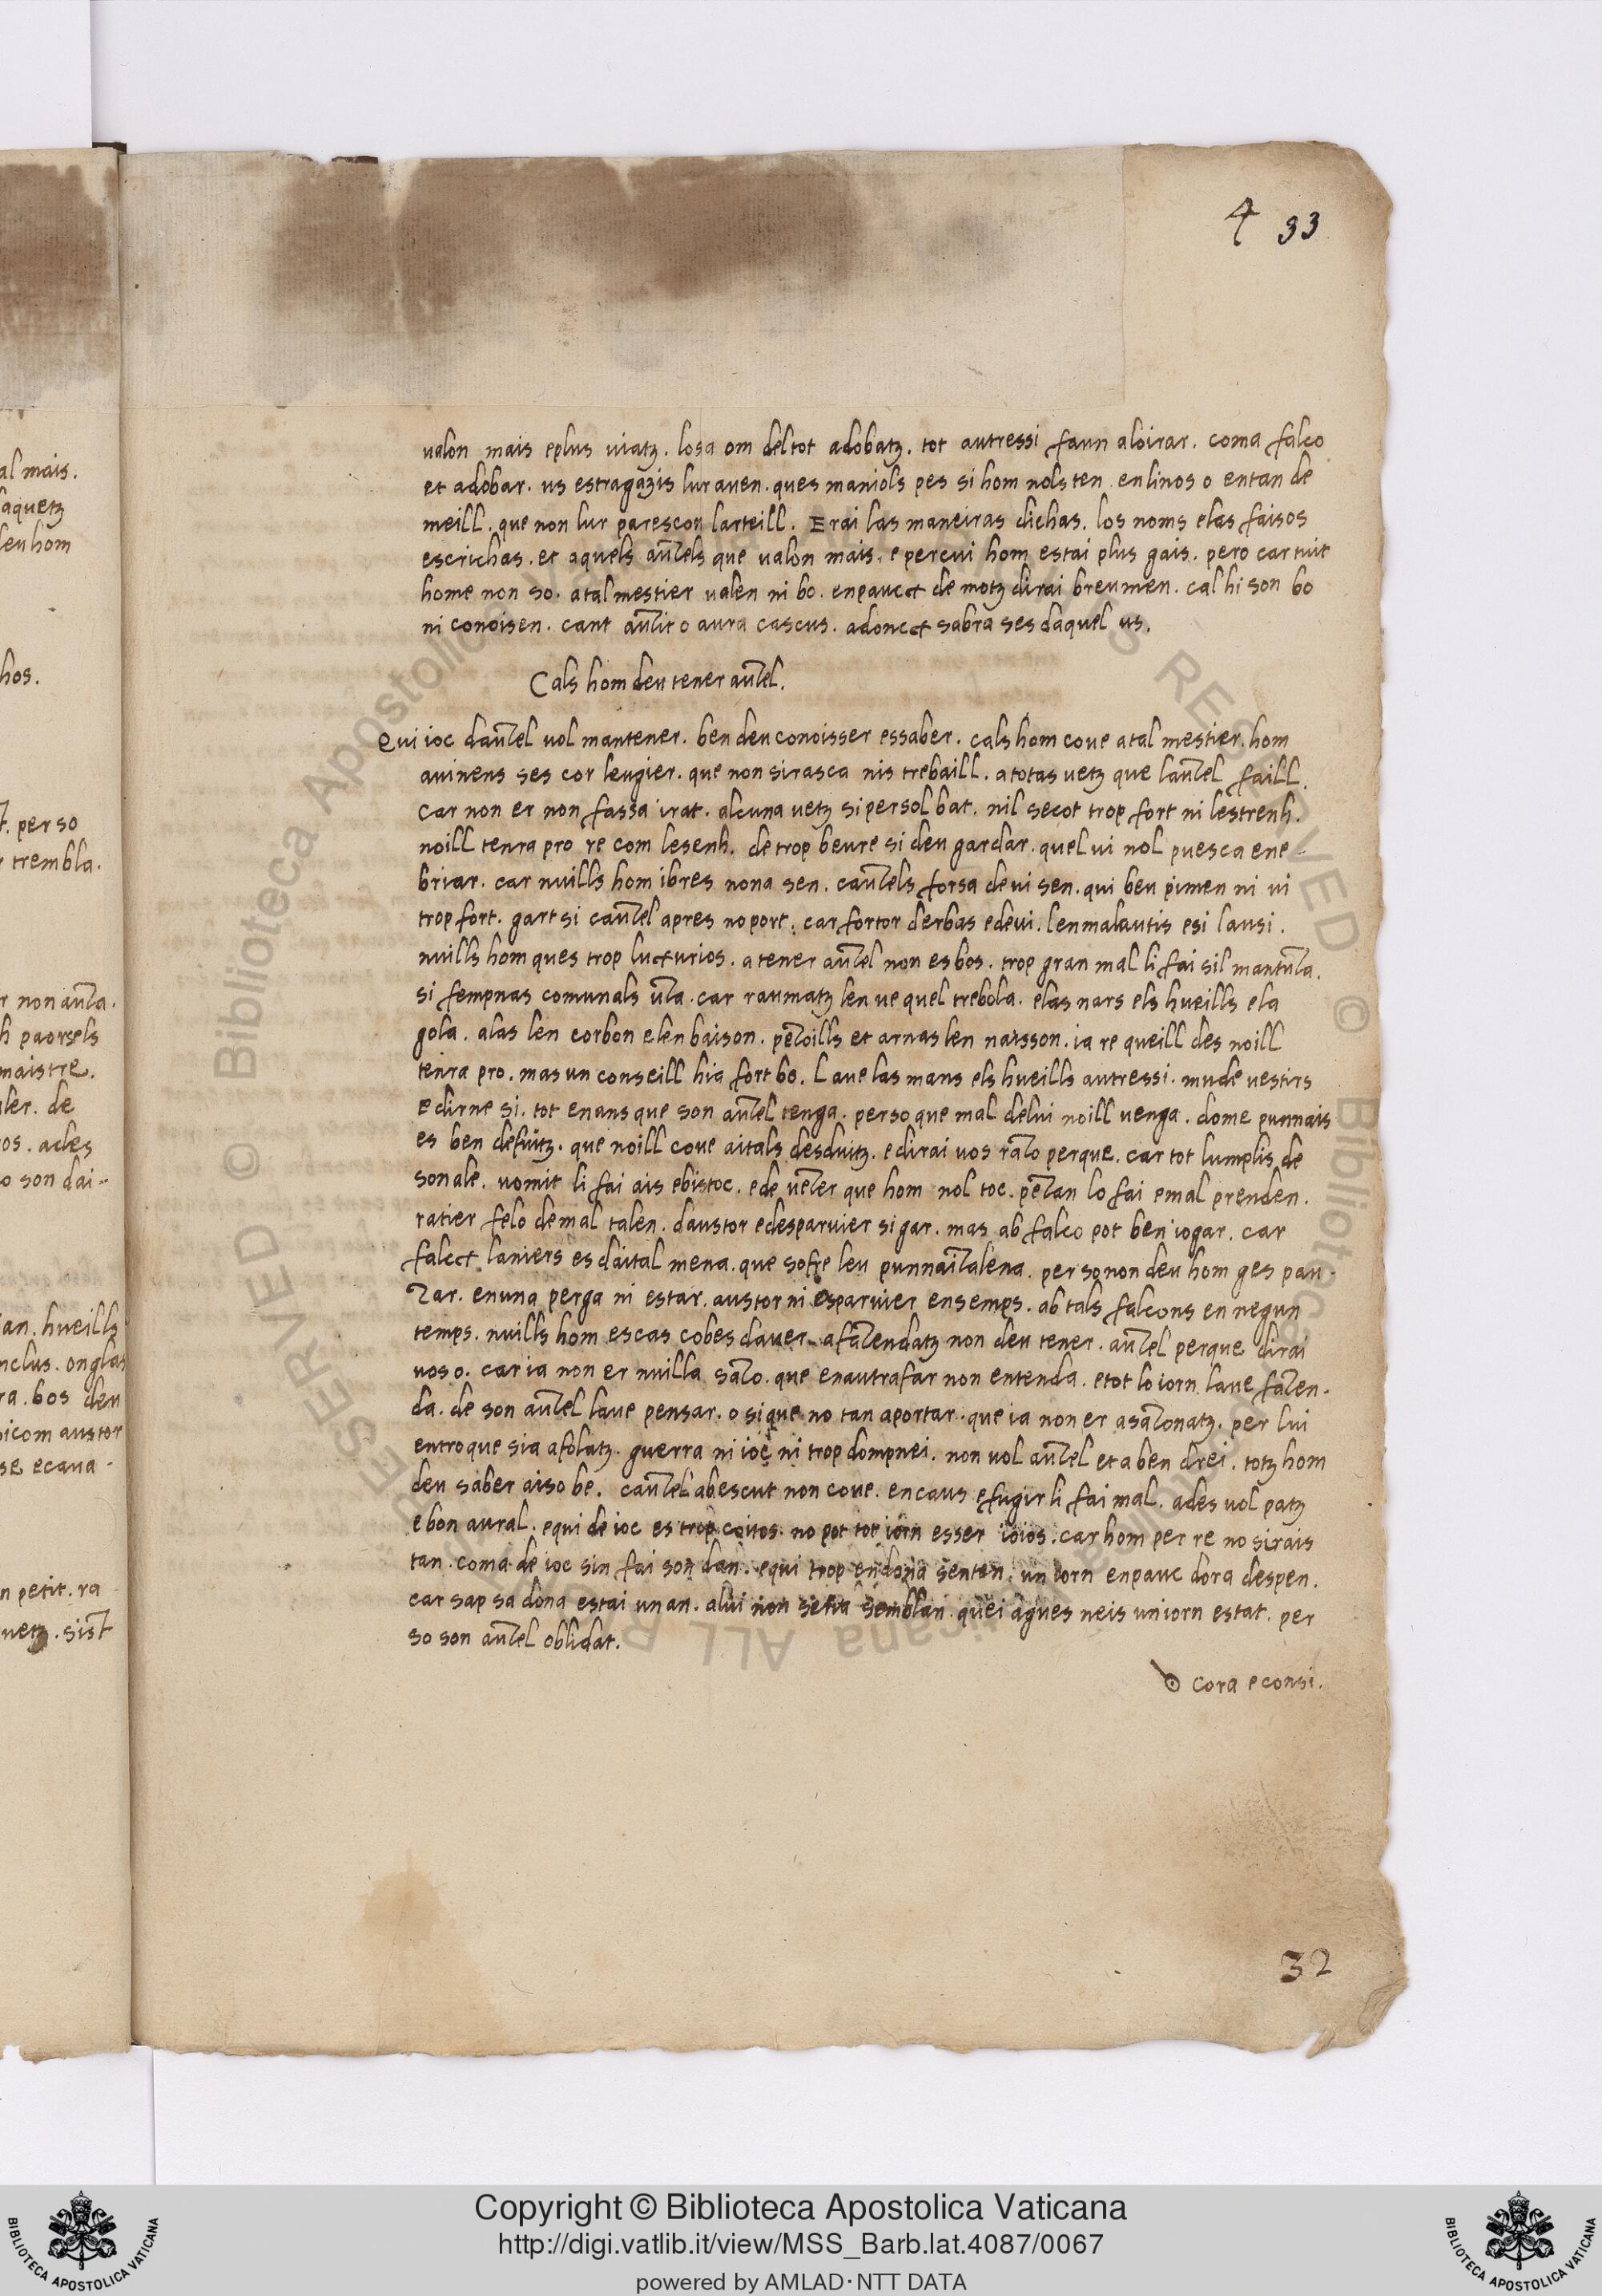 4 33
al mais.
aquetz
leu hom
hos.
t. per so
r trembla.
r non aũta.
h paorsels
maistre.
ler. de
os. ades
o son dai-
an. hueills
nclus. onglas
ra. bos deu
icom austor
se ecaua.
n petit. ra
uetz. sist
ualon mais eplus uiatz. losa om deltot adobatz. tot autressi faun aloirar. coma falco
et adobar. us estragazis lur auen. ques maniols pes si hom nols ten enlinos o entan de
meill. que non lur parescon larteill. Erai las maneiras dichas. los noms elas faisos
escrichas. et aquels aũzels que ualon mais. e percui hom estai plus gais. pero car tuit
home non so. atal mestier ualen ni bo. enpauct de motz dirai breumen. cal hi son bo
ni conoisen. cant aũzit o aura cascus. adonct sabra ses daquel us.
Cals hom deu tener aũzel.
Qui ioc daũzel uol mantener. ben deu conoisser essaber. cals hom coue atal mestier. hom
auinens ses cor leugier. que non sirasca nis trebaill. atotas uetz que laũzel faill.
car non er non fassa irat. alcuna uetz si persol bat. nil secot trop fort ni lestrenh.
noill tenra pro re com lesenh. de trop beure si deu gardar. quel ui nol puesca ene-
briar. car nuills hom ibres nona sen. caũzels forsa de ui sen. qui beu pimen ni ui
trop fort. gart si caũzel apres no port. car fortor derbas edeui. lenmalautis esi lausi.
nuills hom ques trop lucturios. a tener aũzel non es bos. trop gran mal li fai sil mantũta.
si fempnas comunals ũta. car raumatz len ue quel trebola. elas nars els hueills ela
gola. alas len corbon elen baison. pezoills et arnas len naisson. ia re queill des noill
tenra pro. mas un conseill hia fort bo. Laue las mans els hueills autressi. mude uestirs
e dirne si. tot enans que son aũzel tenga. perso que mal delui noill uenga. dome punnais
es ben defuitz. que noill coue aitals desduitz. e dirai uos razo perque. car tot lumplis de
sonale. uomit li fai ais ebistoc. ede uẽzer que hom nol toc. pẽzan lo fai emal prenden.
ratier felo demal talen. daustor edesparuier si gar. mas ab falco pot ben iogar. car
falcct laniers es daital mena. que sofre leu punnaizalena. per so non deu hom ges pau-
zar. enuna perga ni estar. austor ni esparuier ensemps. ab tals falcons en negun
temps. nuills hom escas cobes dauer. afazendatz non deu tener. aũzel perque dirai
uos o. car ia non er nuilla sazo. que enautrafar non entenda. etot lo iorn laue fazen-
da. de son aũzel laue pensar. o sique no tan aportar. que ia non er asazonatz. per lui
entro que sia afolatz. guerra ni ioc ni trop dompnei. non uol aũzel et a ben drei. totz hom
deu saber aiso be. caũzel abescut non coue. encaus efugir li fai mal. ades uol patz
e bon aural. equi de ioc es trop coitos. no pot tot iorn esser ioios. car hom per re no sirais
tan. coma de ioc sin fai son dan. equi trop endona senten. un iorn enpauc dora despen.
car sap sa dona estai un an. alui non seria semblan. quei agues neis un iorn estat. per
so son aũzel oblidat.
Cora e consi.
32
Copyright © Biblioteca Apostolica Vaticana
http://digi.vatlib.it/view/MSS_Barb.lat.4087/0067
powered by AMLAD·NTT DATA